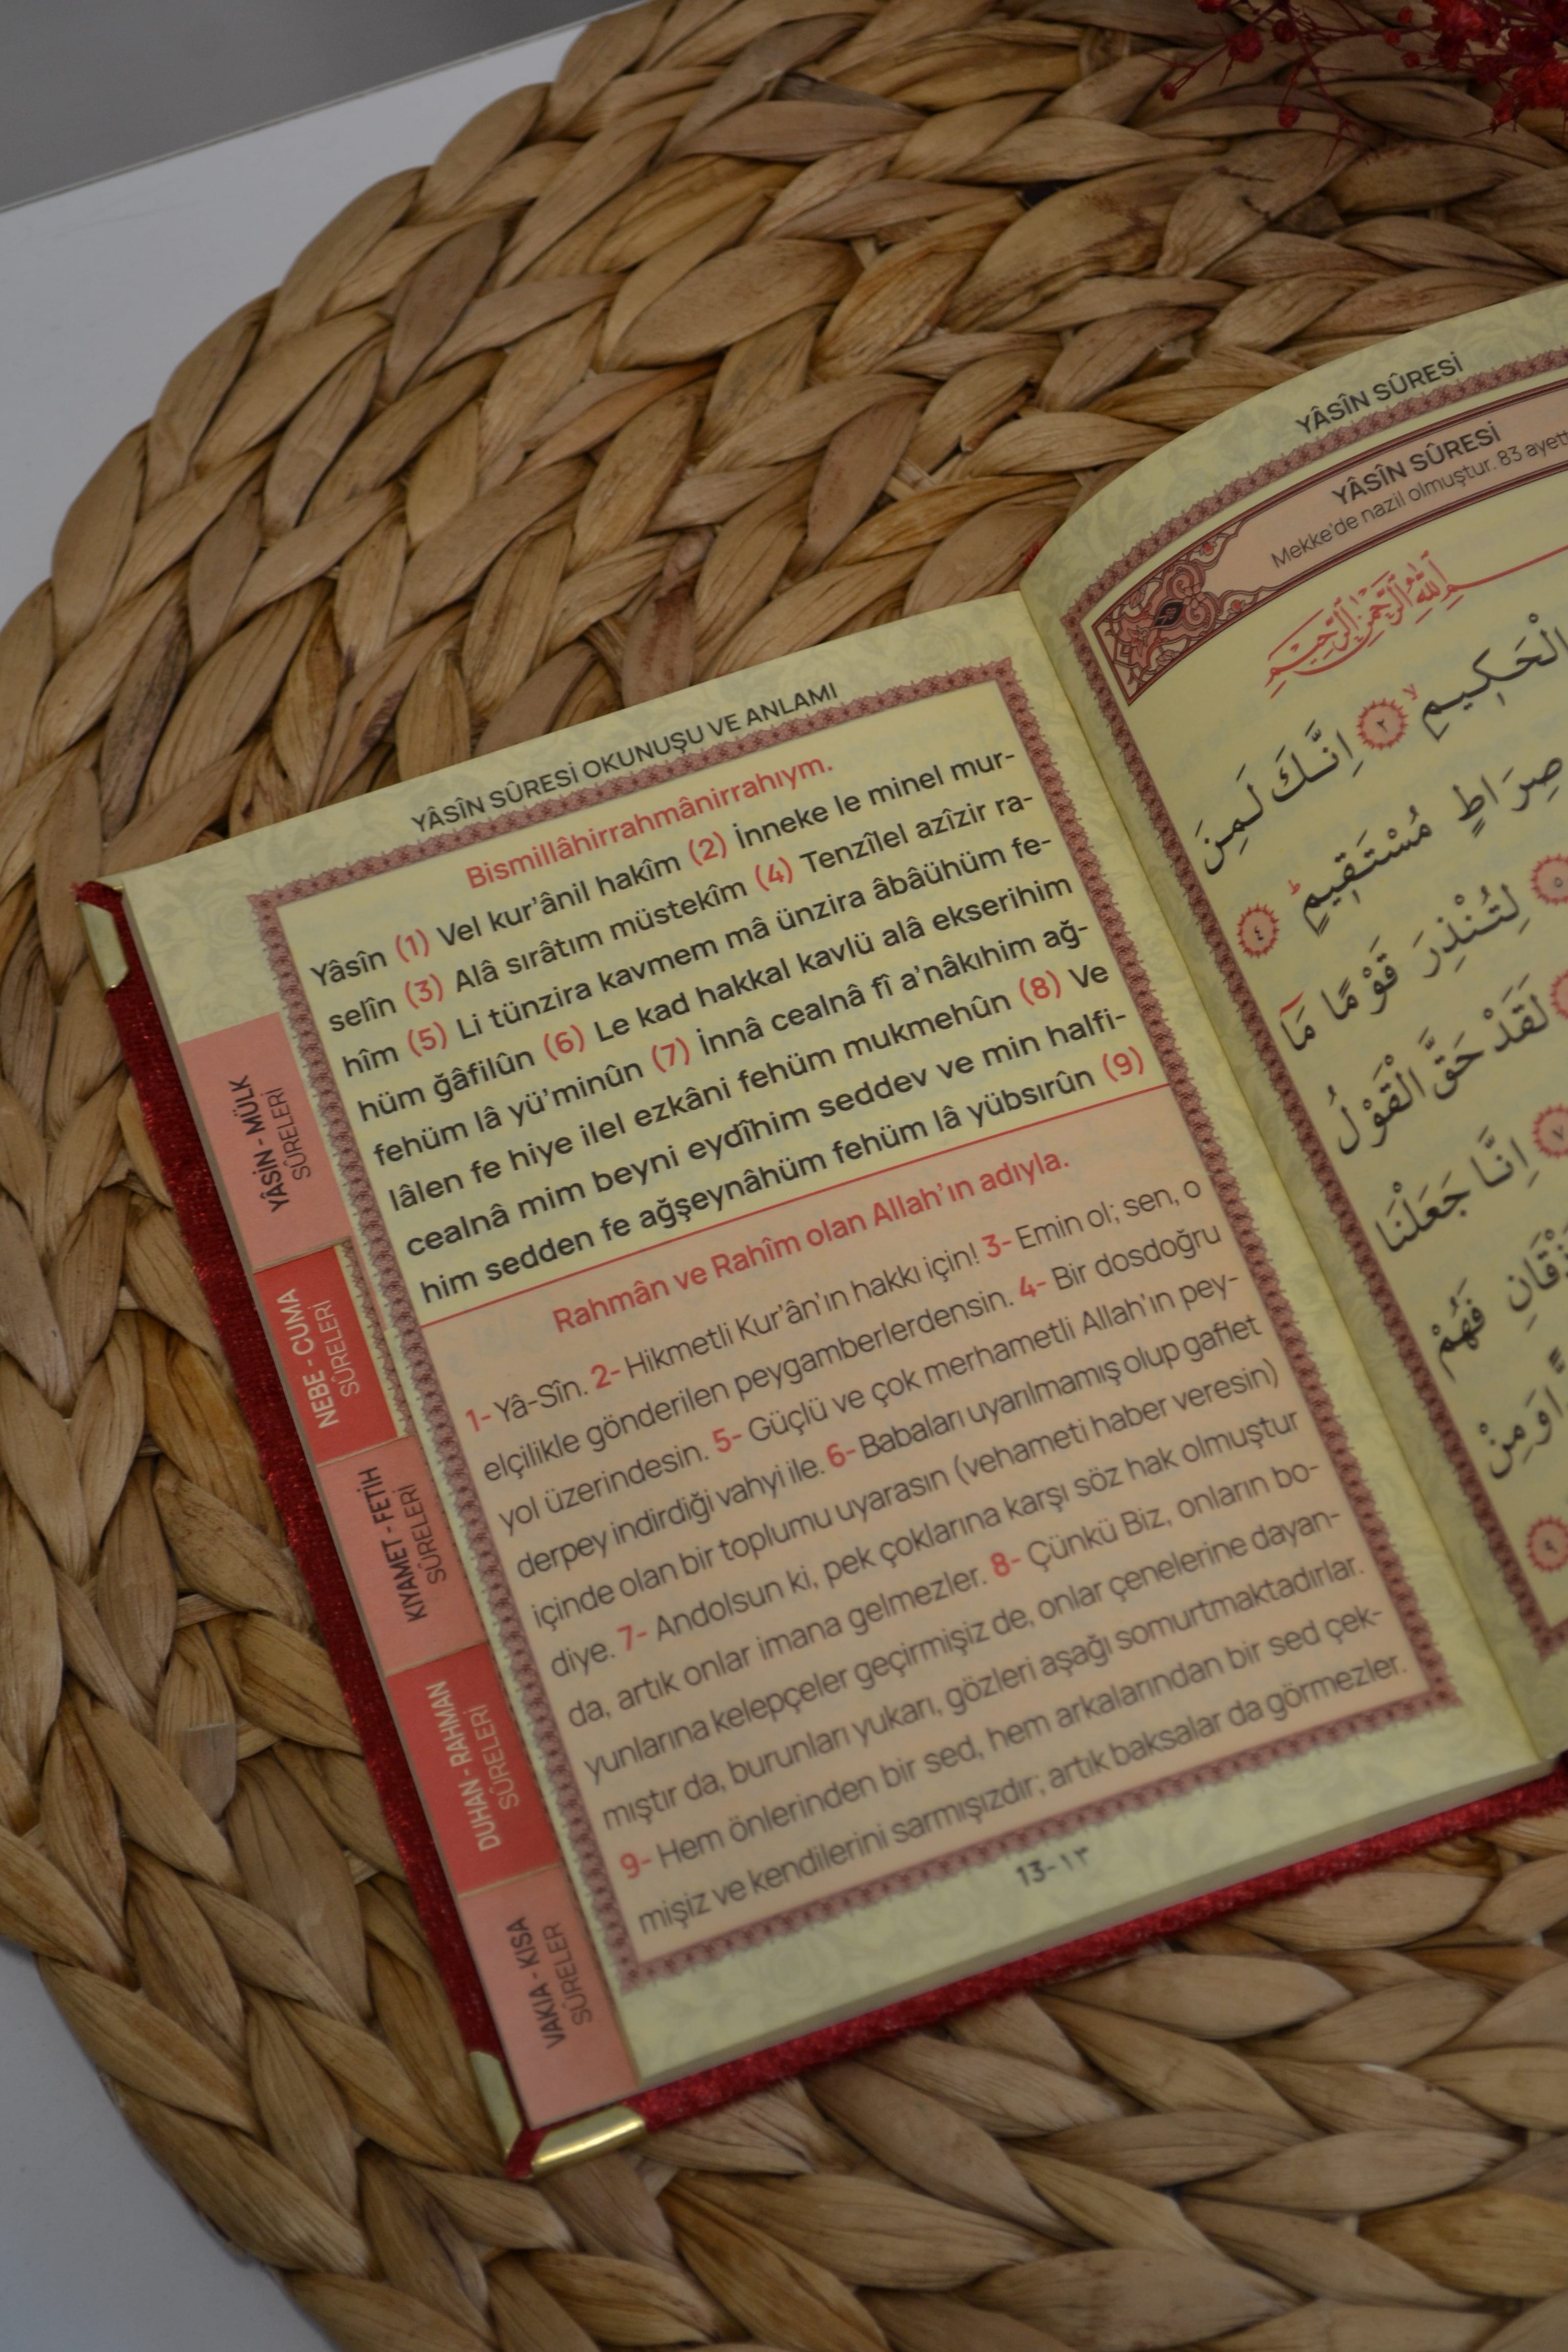 YÂSÎN SÛRESİ OKUNUŞU VE ANLAMI
Bismillâhirrahmânirrahıym.
Yâsîn (1) Vel kur’ânil hakîm (2) İnneke le minel mur-
selîn (3) Alâ sırâtım müstekîm (4) Tenzîlel azîzir ra-
hîm (5) Li tünzira kavmem mâ ünzira âbâühüm fe-
hüm ğâfilûn (6) Le kad hakkal kavlü alâ ekserihim
fehüm lâ yü’minûn (7) İnnâ cealnâ fî a’nâkıhim ağ-
lâlen fe hiye ilel ezkâni fehüm mukmehûn (8) Ve
cealnâ mim beyni eydîhim seddev ve min halfi-
him sedden fe ağşeynâhüm fehüm lâ yübsırûn (9)
Rahmân ve Rahîm olan Allah’ın adıyla.
1- Yâ-Sîn. 2- Hikmetli Kur’ân’ın hakkı için! 3- Emin ol; sen, o
elçilikle gönderilen peygamberlerdensin. 4- Bir dosdoğru
yol üzerindesin. 5- Güçlü ve çok merhametli Allah’ın pey-
derpey indirdiği vahyi ile. 6- Babaları uyarılmamış olup gaflet
içinde olan bir toplumu uyarasın (vehameti haber veresin)
diye. 7- Andolsun ki, pek çoklarına karşı söz hak olmuştur
da, artık onlar imana gelmezler. 8- Çünkü Biz, onların bo-
yunlarına kelepçeler geçirmişiz de, onlar çenelerine dayan-
mıştır da, burunları yukarı, gözleri aşağı somurtmaktadırlar.
9- Hem önlerinden bir sed, hem arkalarından bir sed çek-
mişiz ve kendilerini sarmışızdır; artık baksalar da görmezler.
13-١٣
YÂSİN - MÜLK
SÛRELERİ
NEBE - CUMA
SÛRELERİ
KIYAMET - FETİH
SÛRELERİ
DUHAN - RAHMAN
SÛRELERİ
VAKIA - KISA
SÛRELER
YÂSÎN SÛRESİ
YÂSÎN SÛRESİ
Mekke’de nazil olmuştur. 83 ayett
بِسْمِ اللّٰهِ الرَّحْمٰنِ الرَّحِيمِ
الْحَكِيمِۙ ٢ اِنَّكَ لَمِنَ
صِرَاطٍ مُسْتَقِيمٍۜ ٤
٥ لِتُنْذِرَ قَوْمًا مَٓا
لَقَدْ حَقَّ الْقَوْلُ
٧ اِنَّا جَعَلْنَا
فَهُمْ
وَمِنْ
٩